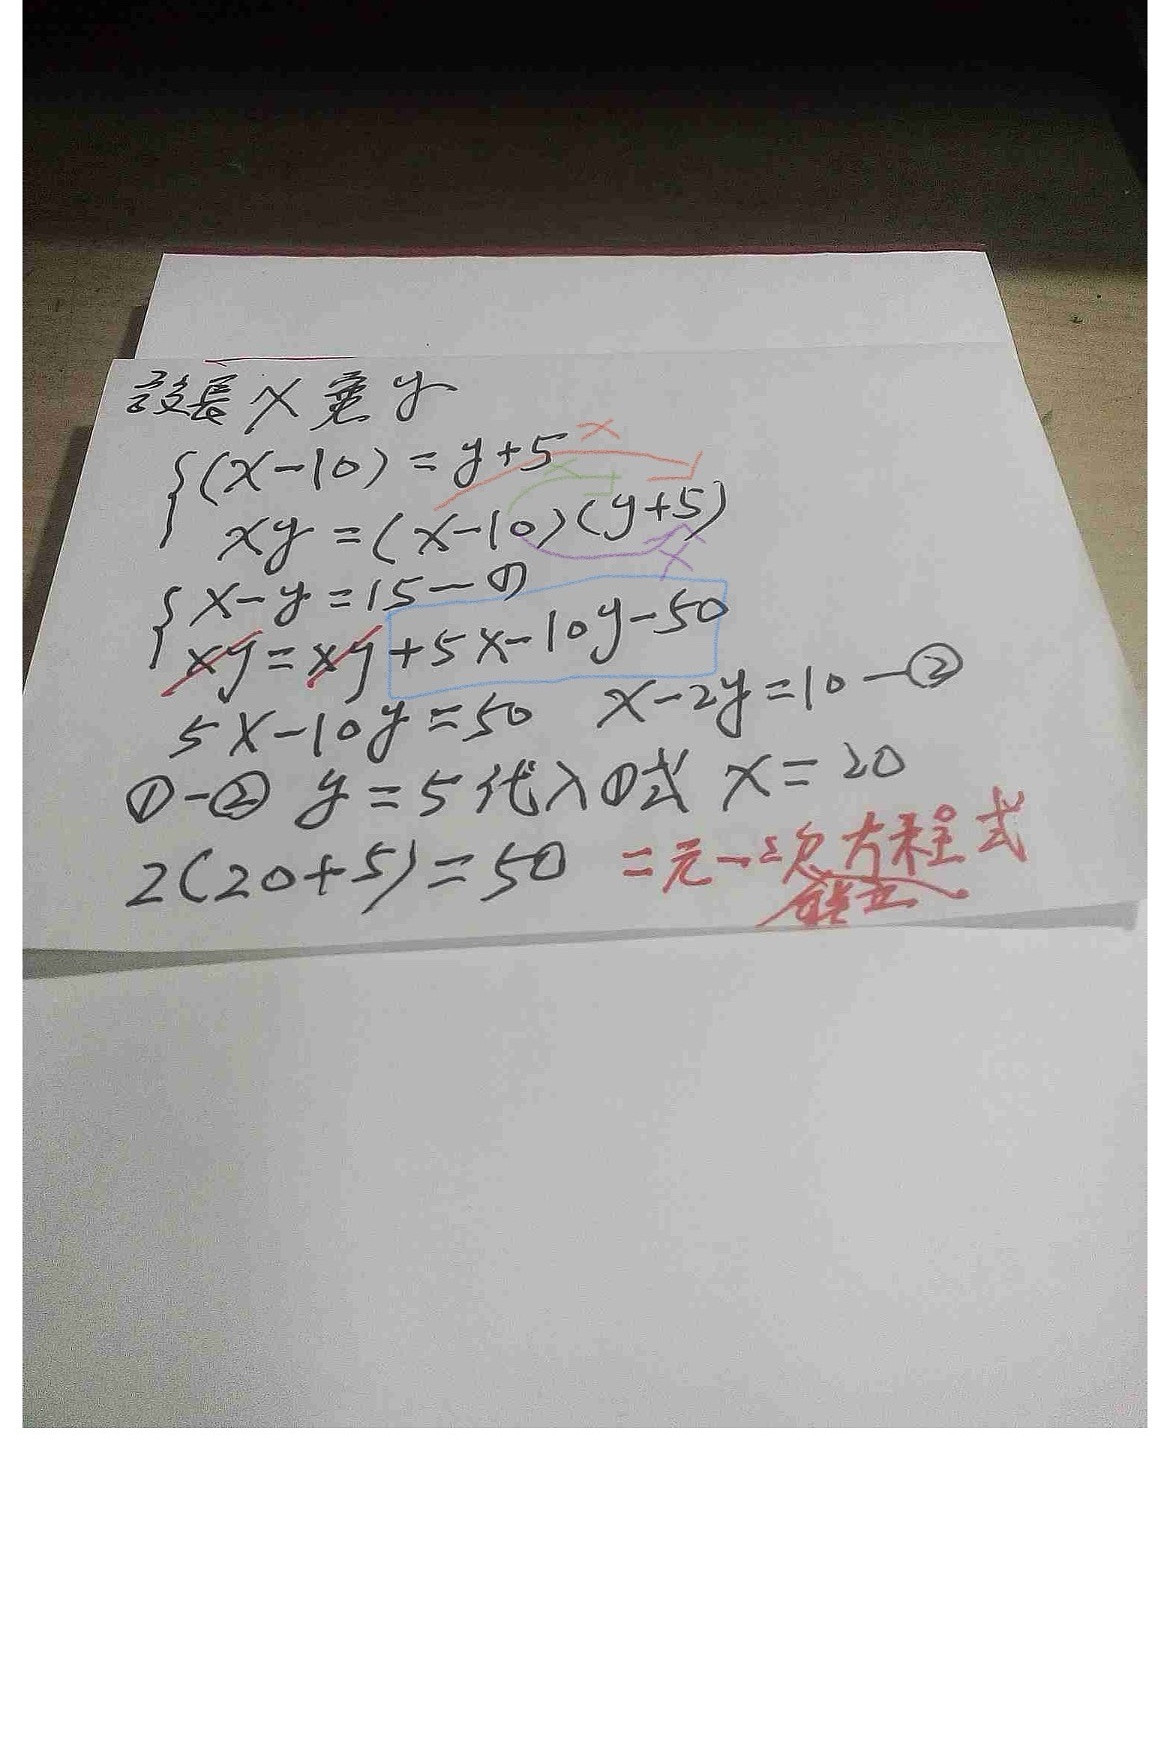 設長 x 寬 y
(x-10) = y+5
xy = (x-10)(y+5)
x-y=15-①
xy=xy+5x-10y-50
5x-10y=50 x-2y=10-②
①-② y=5代入①式 x=20
2(20+5)=50 二元一次方程式
聯立